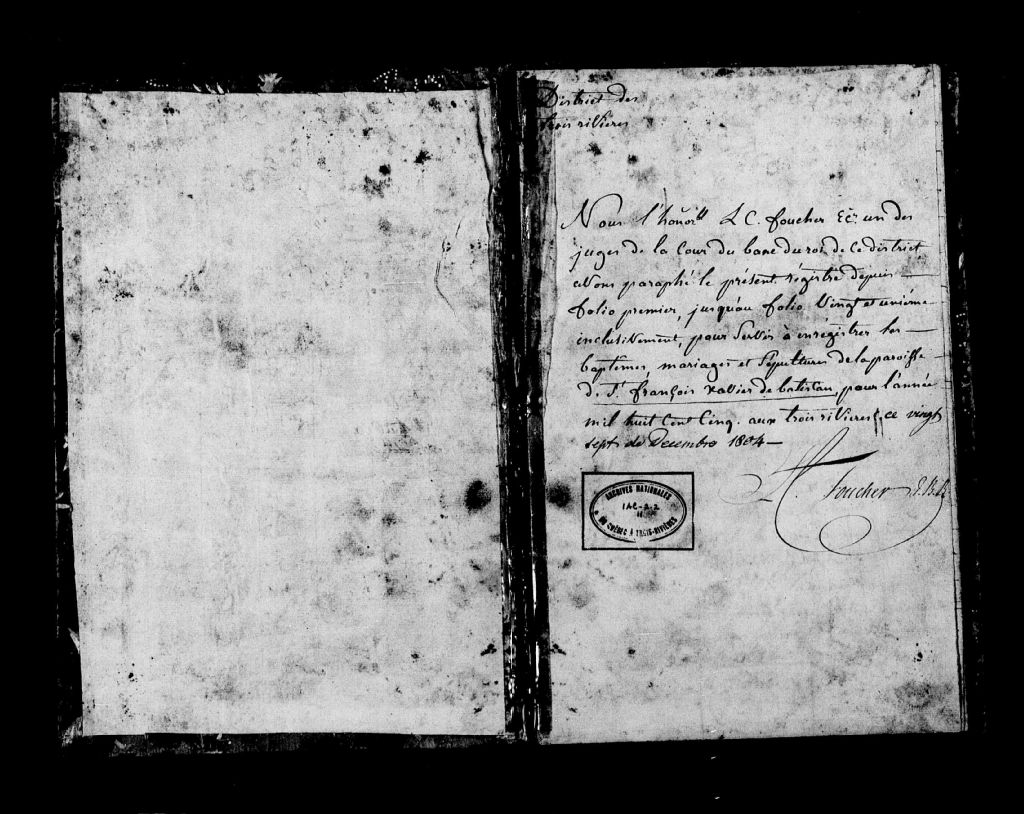 District des
trois rivieres
Nous l'honor L C. foucher Ecr un des
juges de la Cour du banc du roi de ce district
avons paraphé le présent régistre depuis
folio premier, jusqu'au folio Vingt et unième
inclusivement, pour Servir à enrégistrer les
baptemes, mariages et Sepultures de la paroisse
de St. françois xavier de batiscan, pour l'année
mil huit Cent Cinq. aux trois rivieres ce vingt
sept de Decembre 1804
L C. foucher J.B.R.
ARCHIVES NATIONALES
DU QUÉBEC À TROIS-RIVIÈRES